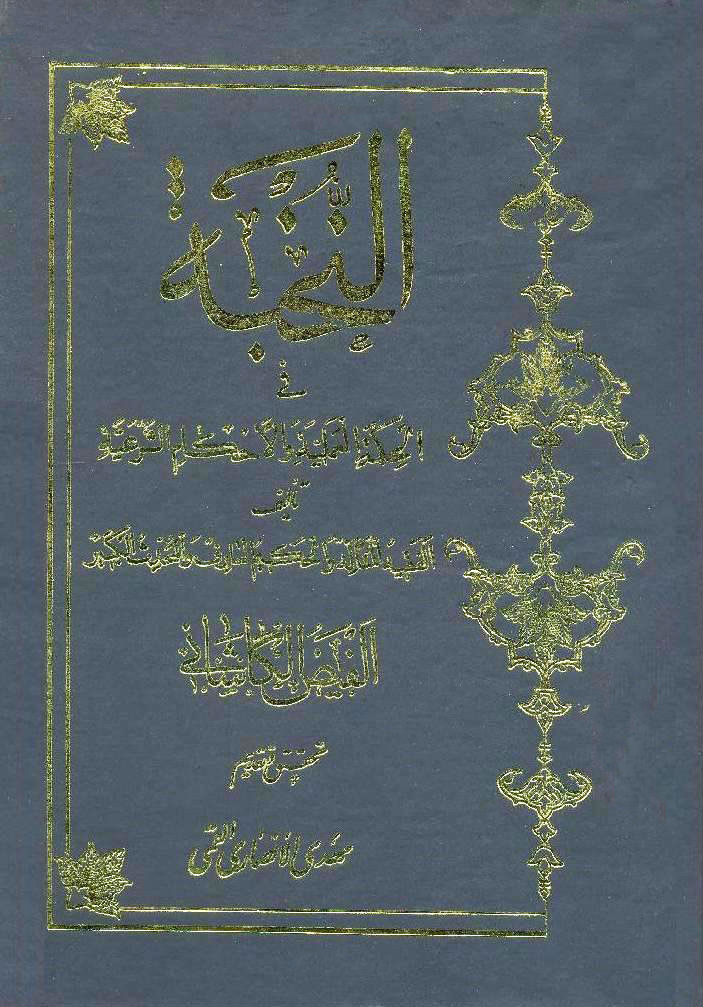 النُّخبة
في
الحِكمَة العَمَليَّة وَالأَحكَامِ الشَّرعيَّة
تأليف
الفقيه المتأله والحكيم العارف والمحدث الكبير
الفيض الكاشاني
تحقيق تقديم
مهدى الانصارى القمى